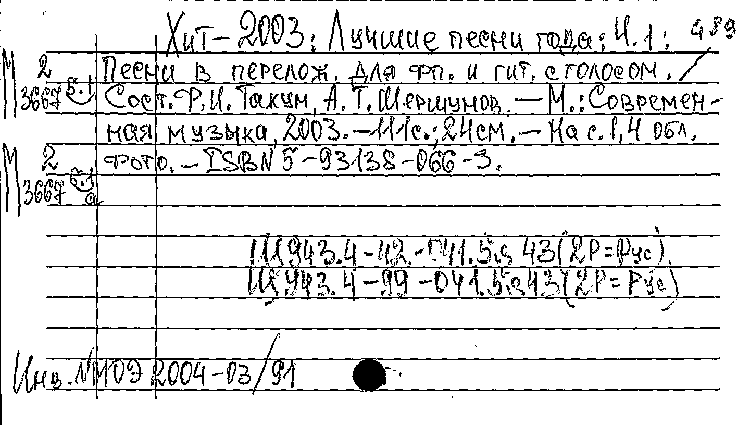 Хит-2003: Лучшие песни года: Ч.1: 489
М 2 Песни в перелож. для фп. и гит. с голосом. /
3667 б.1 Сост. Р.И. Такун, А.Т. Шершунов. — М.: Современ-
ная музыка, 2003. — 111с.; 24см. — На с. 1, 4 обл.
М 2 фото. — ISBN 5-93138-066-3.
3667 б.1
а
Щ943.4-42.-041.5я43(2Р=Рус).
Щ943.4-99-041.5я43(2Р=Рус)
Инв. №МОЭ 2004-03/91